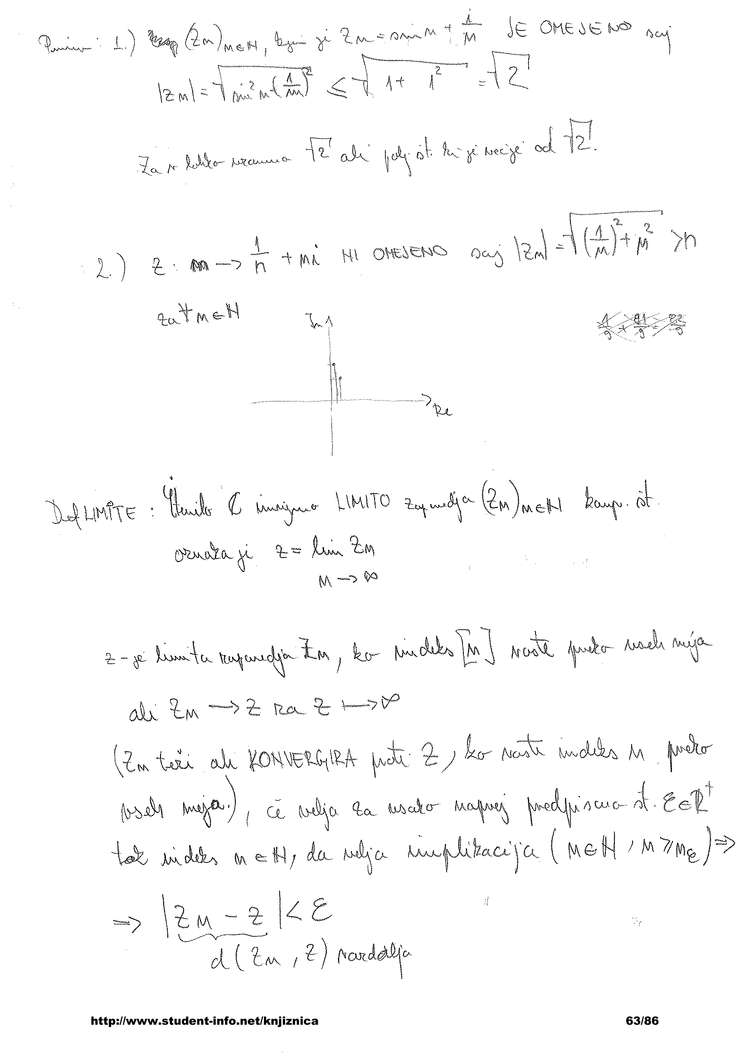 1.) (Zn)n∈N, kjer je Zn = sin n + i/n JE OMEJENO saj
|Zn| = √(sin² n + (1/n)²) ≤ √(1 + 1²) = √2
Za r lahko vzamemo √2 ali polj. št. ki je večje od √2.
2.) Z: n → 1/n + ni NI OMEJENO saj |Zn| = √((1/n)² + n²) > n
za ∀ n∈N
Im
Re
Def LIMITE: Število C imenujemo LIMITO zaporedja (Zn)n∈N komp. št.
oznaka je z = lim Zn
n → ∞
z - je limita zaporedja Zn, ko indeks [n] raste preko vseh meja
ali Zn → Z za Z ↦ ∞
(Zn teži ali KONVERGIRA proti Z, ko raste indeks n preko
vseh meja.), če velja za vsako naprej predpisano št. ε∈R⁺
tak indeks n∈N, da velja implikacija (n∈N, n ≥ nε) ⇒
⇒ |Zn - z| < ε
d(Zn, z) razdalja
http://www.student-info.net/knjiznica 63/86